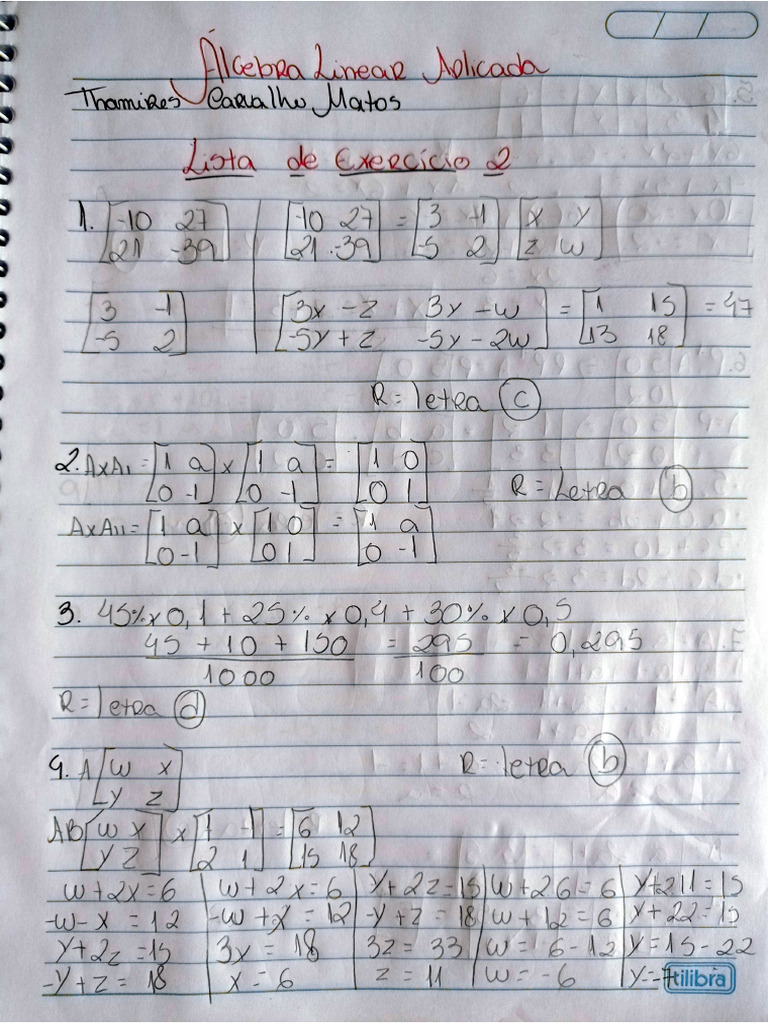 Álgebra Linear Aplicada
Thamires Carvalho Matos
Lista de Exercício 2
1. [-10 27 | [-10 27] = [3 -1] [x y
21 -39] | 21 -39] [-5 2] z w]
[3 -1 | [3x - z 3y - w = [1 15 = 47
-5 2] | -5y + z -5y - 2w] 13 18]
R = letra c
2. AxA1 = [1 a x [1 a = [1 0
0 -1] 0 -1] 0 1]
R = Letra b
AxA11 = [1 a x [1 0 = [1 a
0 -1] 0 1] 0 -1]
3. 45% x 0,1 + 25% x 0,4 + 30% x 0,5
45 + 10 + 150 = 295 = 0,295
1000 100
R = letra d
4. A [w x R = letra b
y z]
AB [w x x [1 -1 = [6 12
y z] 2 1] 15 18]
w + 2x = 6 | w + 2x = 6 | y + 2z = 15 | w + 26 = 6 | y + 211 = 15
-w - x = 12 | -w + x = 12 | -y + z = 18 | w + 12 = 6 | y + 22 = 15
y + 2z = 15 | 3x = 18 | 3z = 33 | w = 6 - 12 | y = 15 - 22
-y + z = 18 | x = 6 | z = 11 | w = -6 | y = -7
tilibra